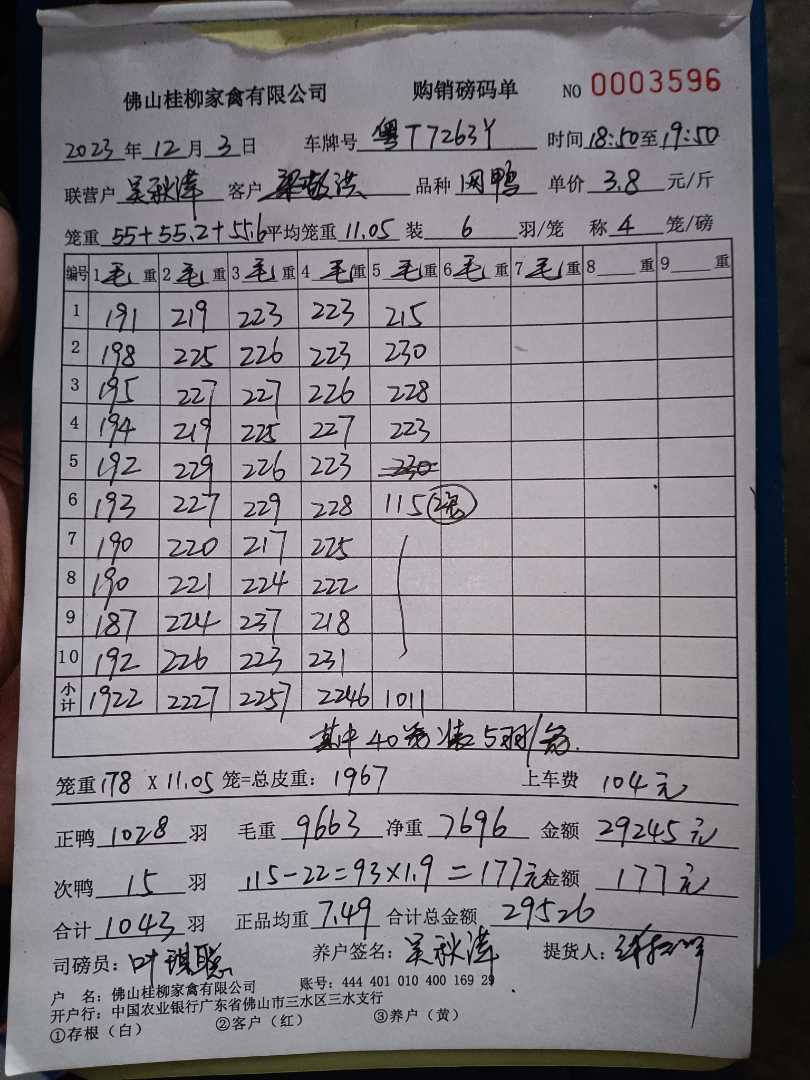 佛山桂柳家禽有限公司 购销磅码单 NO 0003596
2023年12月3日 车牌号 粤T7263Y 时间18:50至19:50
联营户 吴秋漳 客户 梁敬洪 品种 肉鸭 单价 3.8 元/斤
笼重 55+55.2+55.6 平均笼重 11.05 装 6 羽/笼 称 4 笼/磅
编号 1毛重 2毛重 3毛重 4毛重 5毛重 6毛重 7毛重 8 重 9 重
1 191 219 223 223 215
2 198 225 226 223 230
3 195 227 227 226 228
4 194 219 225 227 223
5 192 229 226 223 230
6 193 227 229 228 115
7 190 220 217 225
8 190 221 224 222
9 187 224 237 218
10 192 226 223 231
小计 1922 2227 2257 2246 1011
其中40笼装5羽/笼.
笼重178 X 11.05 笼=总皮重：1967 上车费 104元
正鸭 1028 羽 毛重 9663 净重 7696 金额 29245元
次鸭 15 羽 115-22=93×1.9=177元 金额 177元
合计 1043 羽 正品均重 7.49 合计总金额 29526
司磅员：叶琪聪 养户签名：吴秋漳 提货人：
户 名：佛山桂柳家禽有限公司 账号：444 401 010 400 169 29
开户行：中国农业银行广东省佛山市三水区三水支行
①存根（白） ②客户（红） ③养户（黄）